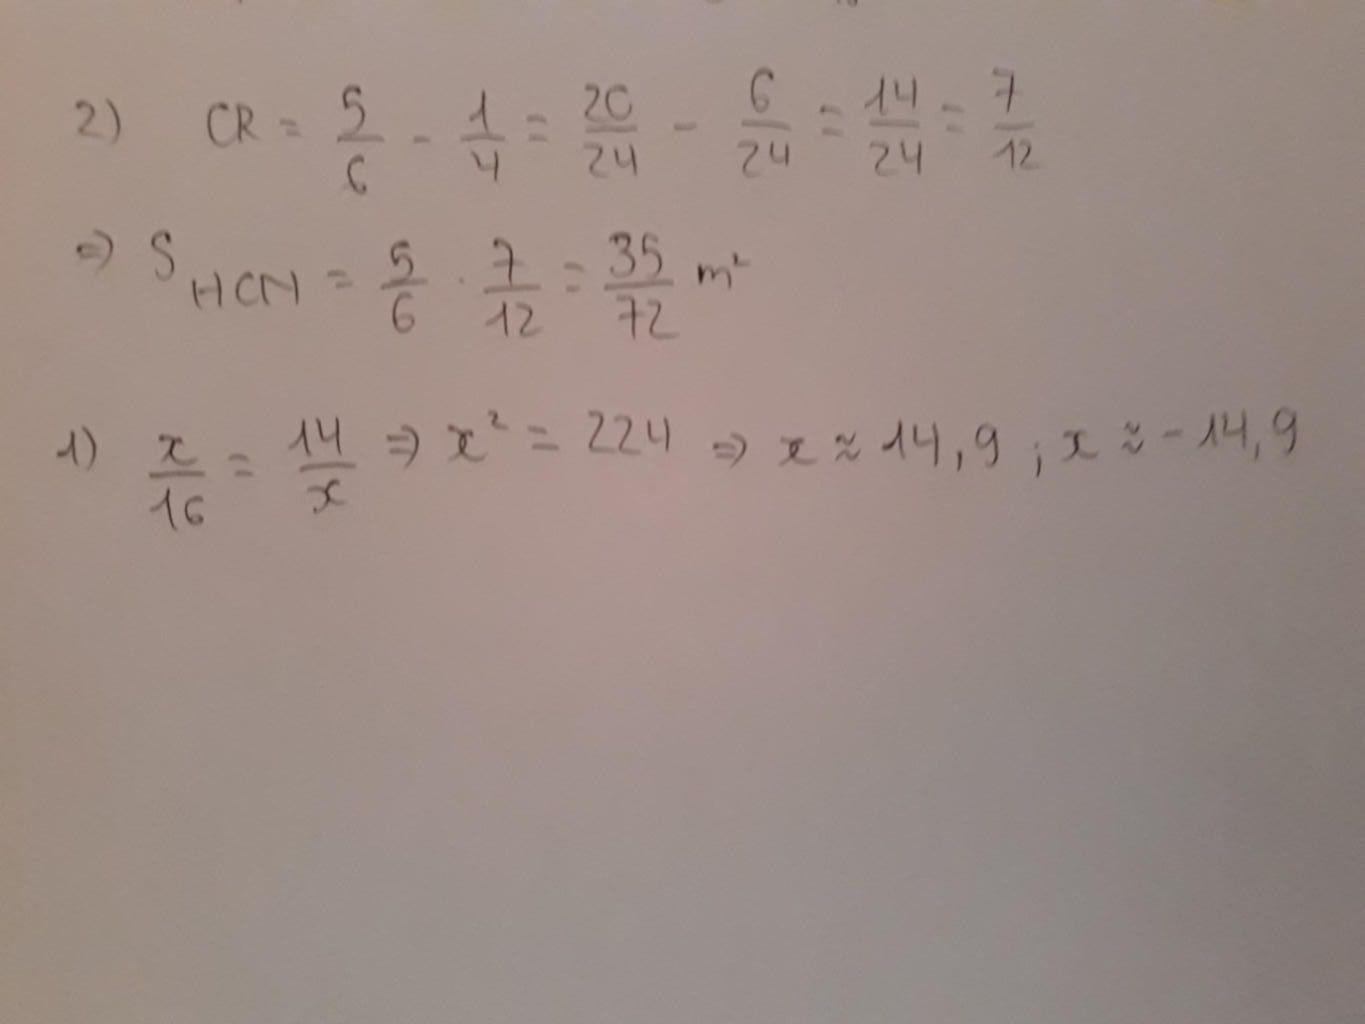 2) CR = 5/6 - 1/4 = 20/24 - 6/24 = 14/24 = 7/12
⇒ S HCN = 5/6 . 7/12 = 35/72 m²
1) x/16 = 14/x ⇒ x² = 224 ⇒ x ≈ 14,9 ; x ≈ -14,9